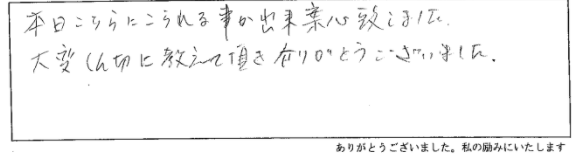 本日こちらにこられる事が出来案心致しました.
大変しん切に教えて頂き有りがとうございました.
ありがとうございました。私の励みにいたします